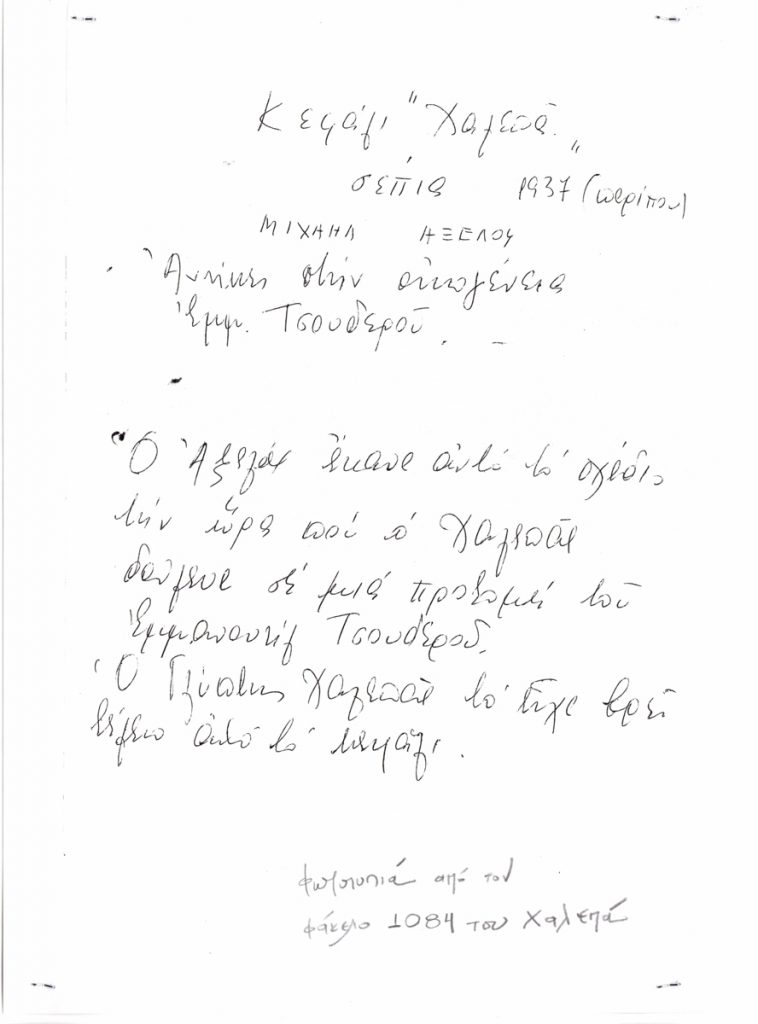 Κεφάλι "Χαλεπᾶ"
σέπια 1937 (περίπου)
ΜΙΧΑΗΛ ΑΞΕΛΟΥ
Ἀνήκει στὴν οἰκογένεια
Ἐμμ. Τσουδεροῦ.
Ὁ Ἀξελός ἔκανε αὐτό τό σχέδιο
τήν ὥρα πού ὁ Χαλεπᾶς
δούλευε σέ μιά προτομή τοῦ
Ἐμμανουήλ Τσουδεροῦ.
Ὁ Γλύπτης Χαλεπᾶς τό εἶχε βρεῖ
τέλειο αὐτό τό κεφάλι.
φωτοτυπιά από τον
φάκελο 1084 του Χαλεπά